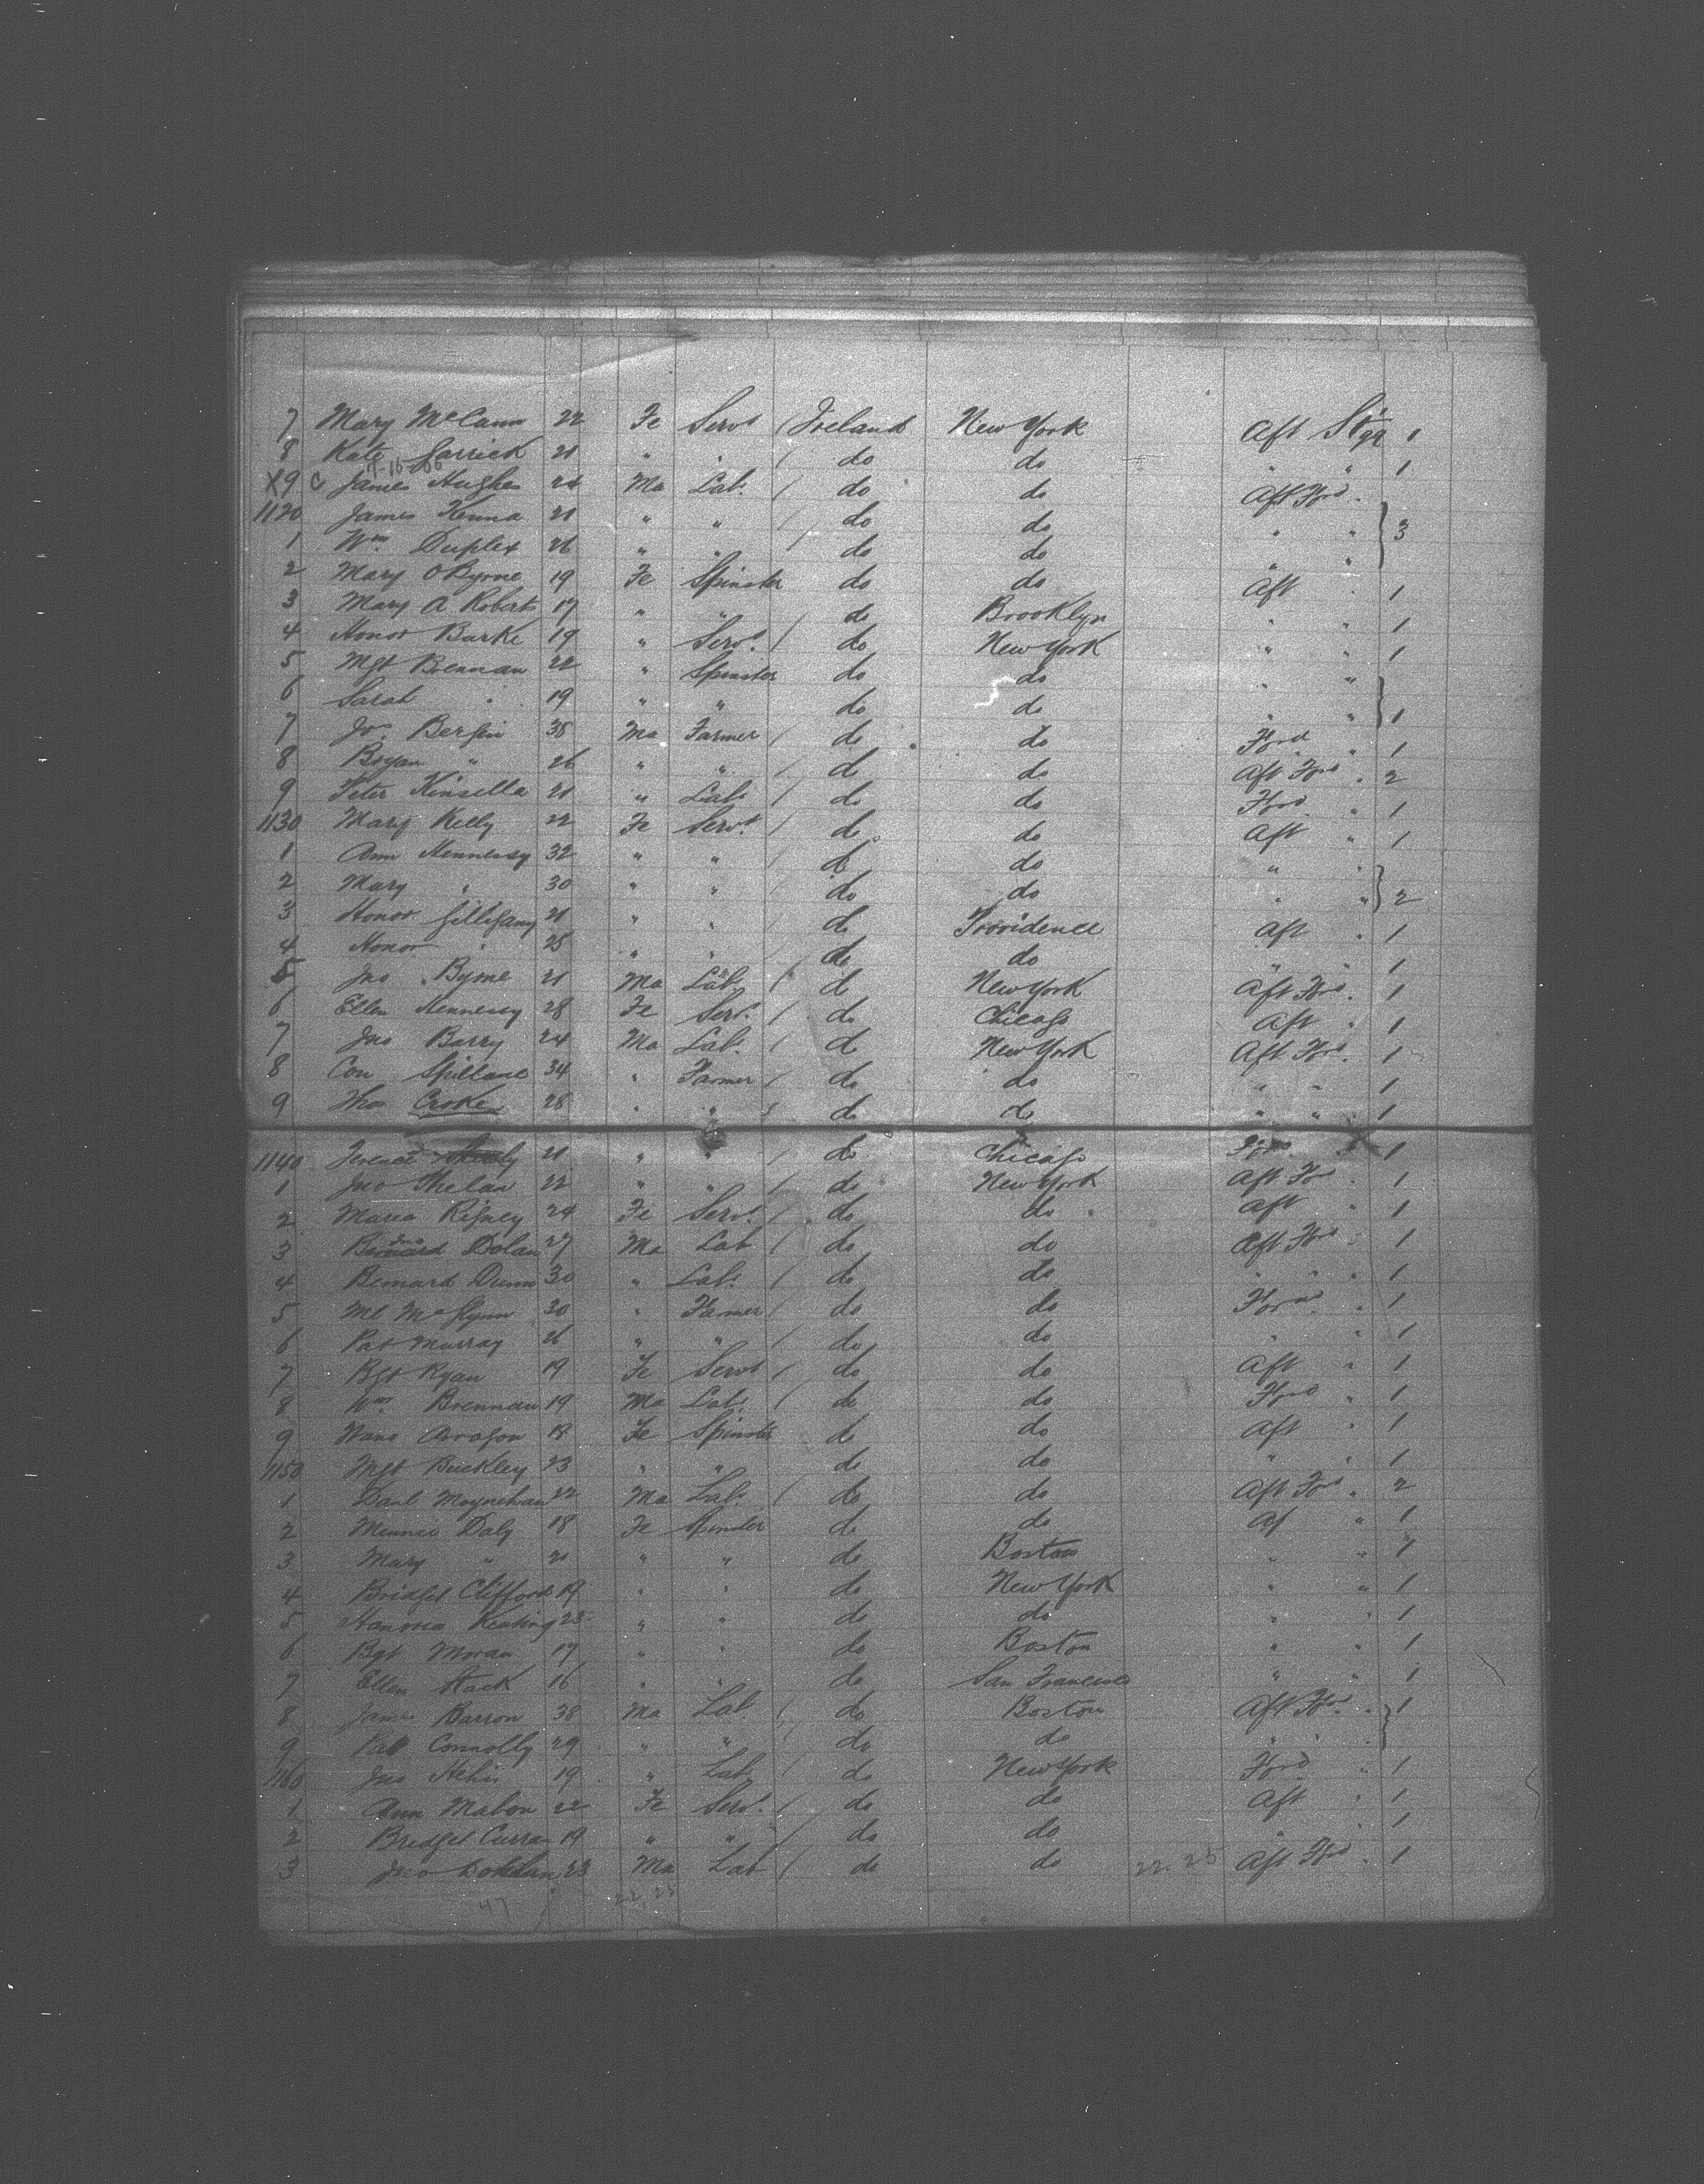 7 Mary McCann 22 Fe Servt / Ireland New York Aft Stge 1
8 Kate Garrick 21 " " / do do " " 1
11-16-06
X9 C James Hughes 24 Ma Labr / do do Aft Ford "
1120 James Kenna 21 " " / do do " " } 3
1 Wm Duplex 26 " " / do do " "
2 Mary OByrne 19 Fe Spinster do do Aft " 1
3 Mary A Roberts 17 " " do Brooklyn " " 1
4 Honor Burke 19 " Servt / do New York " " 1
5 Mgt Brennan 22 " Spinster do do " "
6 Sarah " 19 " " do do " " } 1
7 Jos Bergin 38 Ma Farmer / do do Ford " 1
8 Bryan " 26 " " / do do Aft Ford " 2
9 Peter Kinsella 21 " Labr / do do Ford " 1
1130 Mary Kelly 22 Fe Servt / do do Aft " 1
1 Ann Hennessy 32 " " / do do " "
2 Mary " 30 " " / do do " " } 2
3 Honor Gilligan 21 " " do Providence Aft " 1
4 Honor " 25 " " do do " " 1
5 Jno Byrne 21 Ma Labr / do New York Aft Ford " 1
6 Ellen Hennessy 28 Fe Servt / do Chicago Aft " 1
7 Jno Barry 24 Ma Labr / do New York Aft Ford " 1
8 Con Spillane 34 " Farmer / do do " " 1
9 Thos Croke 28 " " do do " " " 1
1140 Terence 21 " " / do Chicago Ford X 1
1 Jno Phelan 22 " " / do New York Aft Fo " 1
2 Maria Rigney 24 Fe Servt / do do Aft " 1
3 Bernard Dolan 27 Ma Lab / do do Aft Ford " 1
4 Bernard Dunn 30 " Labr / do do " " " 1
5 Ml McGlynn 30 " Farmer / do do Ford " 1
6 Pat Murray 26 " " / do do " " 1
7 Bgt Ryan 19 Fe Servt / do do Aft " 1
8 Wm Brennan 19 Ma Labr / do do Ford " 1
9 Aragon 18 Fe Spinster do do Aft " 1
1150 Mgt Buckley 23 " " do do " " 1
1 Danl Moynehan 22 Ma Labr / do do Aft Ford " 2
2 Minnie Daly 18 Fe Spinster do do Af " 1
3 Mary " 20 " " do Boston " " 1
4 Bridget Clifford 19 " " do New York " " 1
5 Hanoria Keating 25 " " do do " " 1
6 Bgt Moran 17 " " do Boston " " 1
7 Ellen Stack 16 " " do San Francisco " " 1
8 James Barron 38 Ma Labr / do Boston Aft Ford " } 1
9 Pat Connolly 29 " " / do do " " "
1160 Jno 19 " Labr / do New York Ford " 1
1 Ann Mabon 22 Fe Servt / do do Aft " 1
2 Bridget Curran 19 " " / do do " 1
3 Jno 23 Ma Lab / do do 22.25 Aft Ford " 1
47 22.25